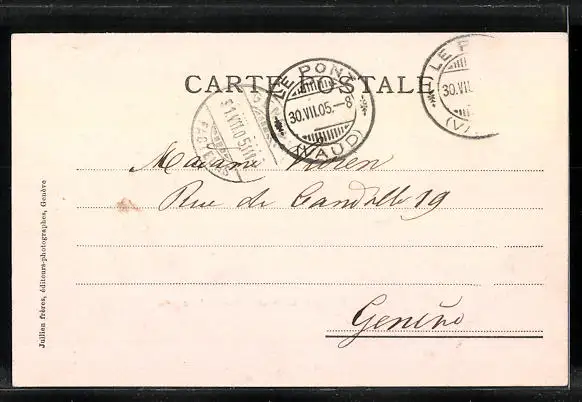 CARTE POSTALE
LE PONT
30.VII.05.-8
(VAUD)
LE P
30.VII.
(VA
Madame
Rue de Candolle 19
Genève
Jullien frères, éditeurs-photographes, Genève